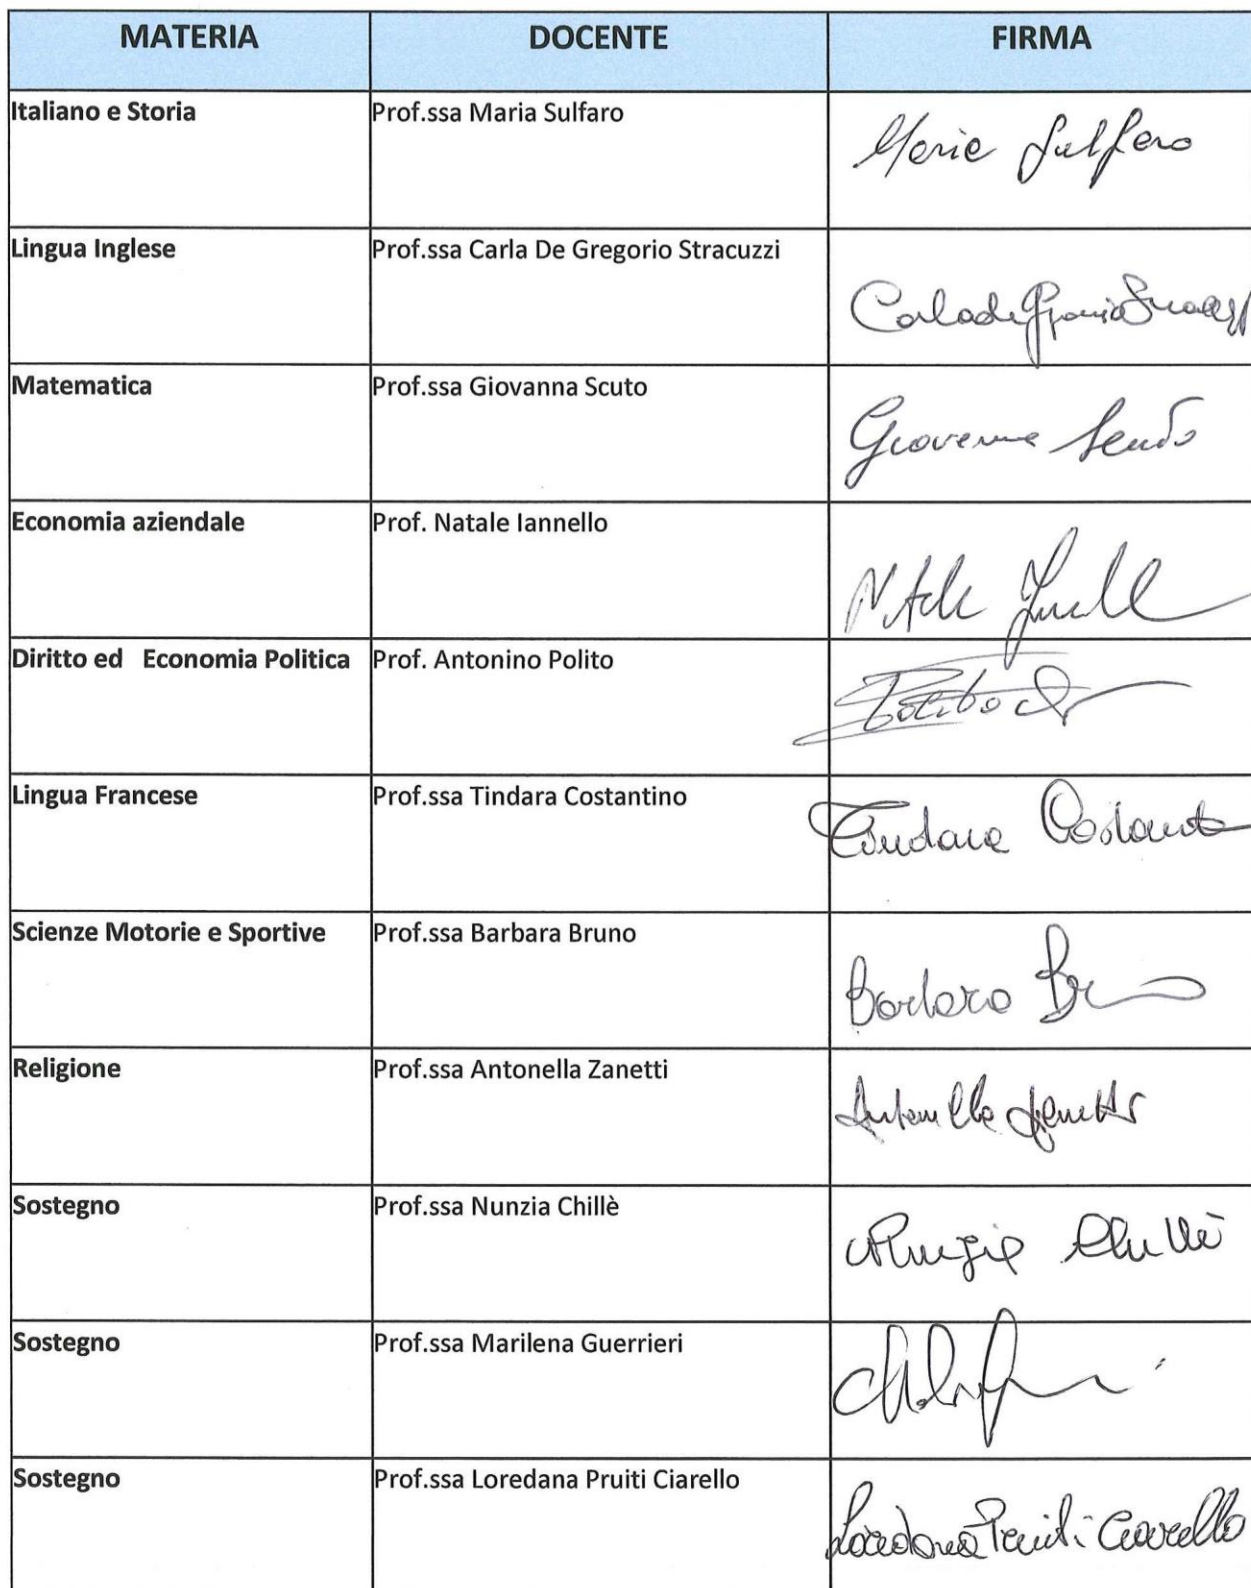 MATERIA DOCENTE FIRMA
Italiano e Storia Prof.ssa Maria Sulfaro Maria Sulfaro
Lingua Inglese Prof.ssa Carla De Gregorio Stracuzzi
Matematica Prof.ssa Giovanna Scuto Giovanna Scuto
Economia aziendale Prof. Natale Iannello
Diritto ed Economia Politica Prof. Antonino Polito Polito
Lingua Francese Prof.ssa Tindara Costantino Tindara
Scienze Motorie e Sportive Prof.ssa Barbara Bruno Barbara
Religione Prof.ssa Antonella Zanetti Antonella Zanetti
Sostegno Prof.ssa Nunzia Chillè Nunzia Chillè
Sostegno Prof.ssa Marilena Guerrieri
Sostegno Prof.ssa Loredana Pruiti Ciarello Loredana Pruiti Ciarello